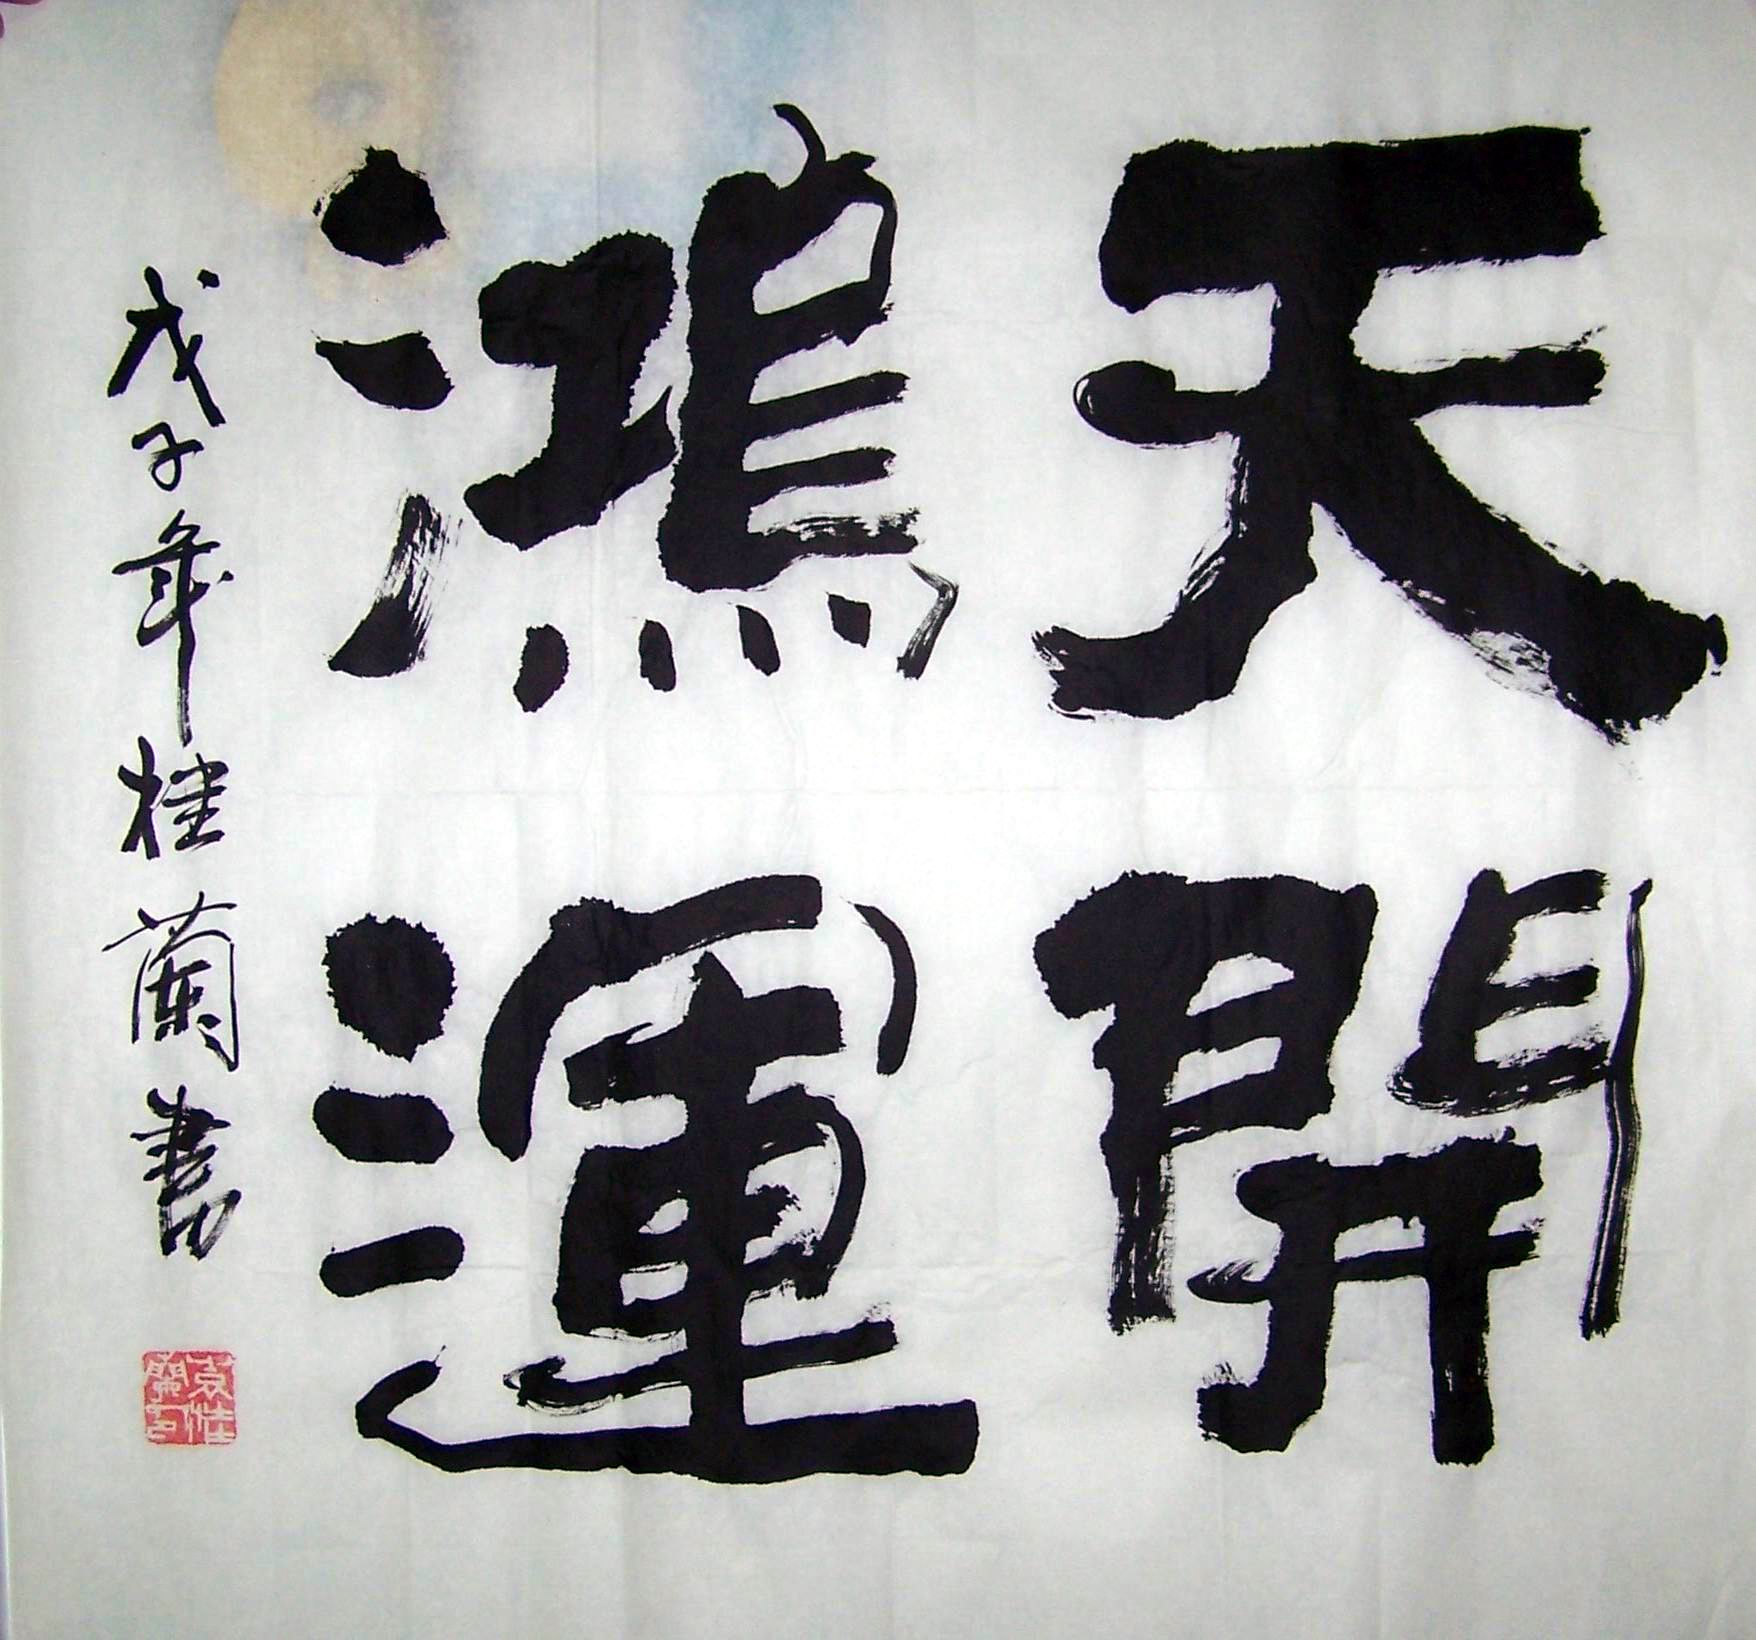 天開
鴻運
戊子年桂蘭書